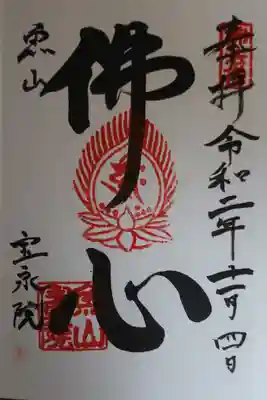 奉拝 令和二年十一月四日
佛心
恵山
宝永院